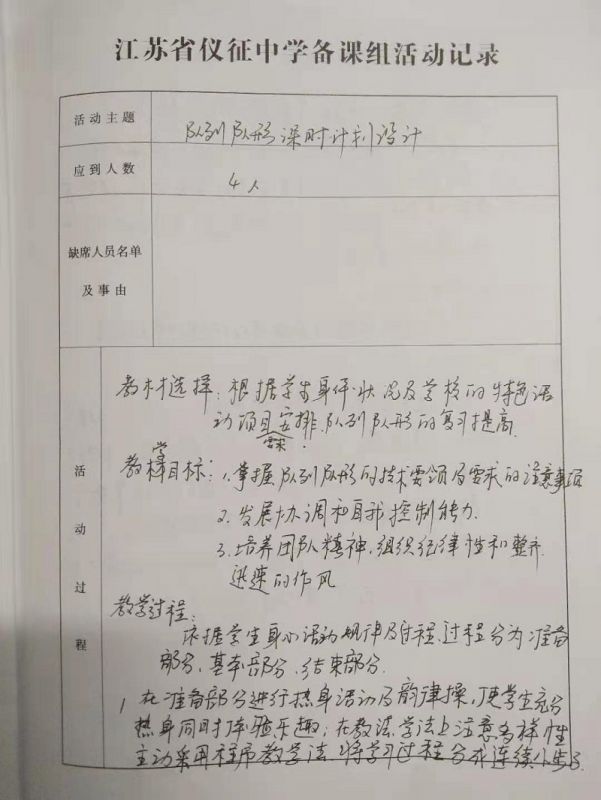 江苏省仪征中学备课组活动记录
活动主题
队列队形课时计划设计
应到人数
4人
缺席人员名单
及事由
活动过程
教材选择：根据学生身体状况及学校的特色活
动项目安排.队列队形的复习提高.
需求
学
教材目标：1.掌握队列队形的技术要领及要求的注意事项
2.发展协调和自我控制能力
3.培养团队精神.组织纪律性和整齐
迅速的作风
教学过程：
依据学生身心活动规律及过程.过程分为准备
部分.基本部分.结束部分.
1 在准备部分进行热身活动及韵律操,使学生充分
热身同时体验乐趣;在教法.学法上注意多样性
主动采用程序教学法.将学习过程分成连续小步子